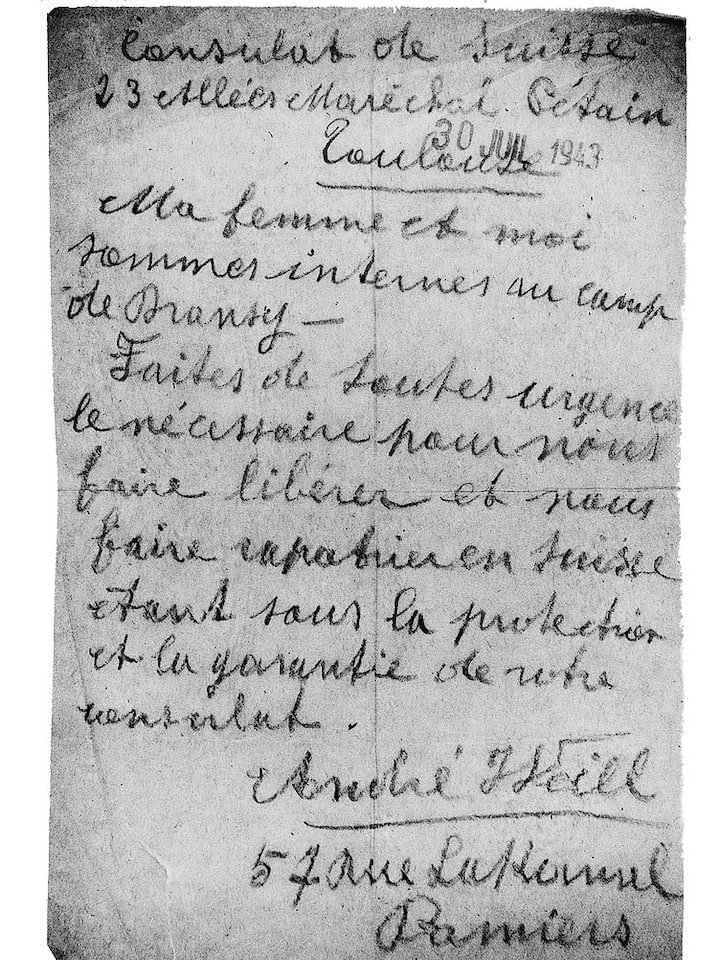 Consulat de Suisse
23 Allées Maréchal Pétain
Toulouse
30 JUIL 1943
Ma femme et moi
sommes internes au camp
de Dransy —
Faites de toutes urgence
le nécessaire pour nous
faire libérer et nous
faire rapatrier en Suisse
étant sous la protection
et la garantie de votre
consulat.
André Weill
57 Rue Lakanal
Pamiers